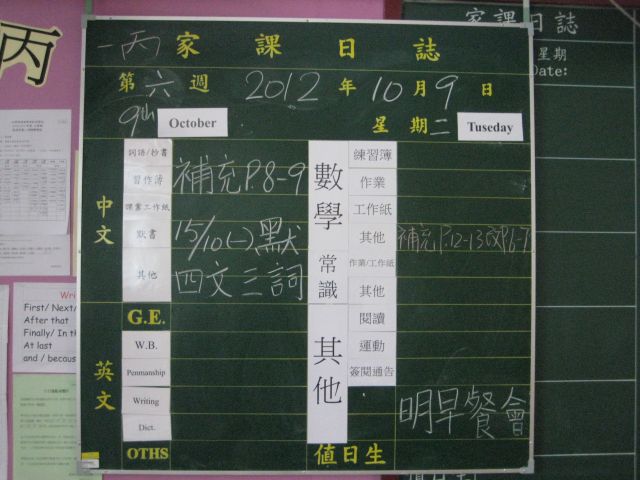 丙
一丙 家課日誌
第六週 2012年10月9日
9th October 星期二 Tuseday
中文
詞語/抄書
習作簿 補充P.8-9
課業工作紙
默書 15/10(一)默
其他 四文三詞
英文
G.E.
W.B.
Penmanship
Writing
Dict.
OTHS
數學
練習簿
作業
工作紙
其他 補充P.12-13
常識
作業/工作紙
其他
其他
閱讀
運動
簽閱通告
明早餐會
值日生
家課日誌
星期
Date:
First/ Next/
After that
Finally/ In th
At last
and / becaus